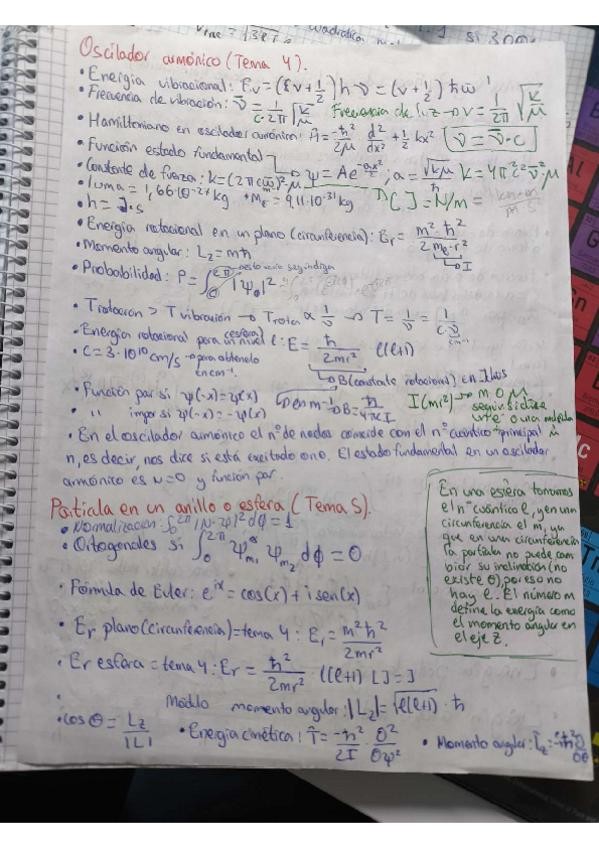 Oscilador armónico (Tema 4).
• Energía vibracional: Ev = (v + 1/2) h ν = (v + 1/2) ħω
• Frecuencia de vibración: ν̃ = 1/(c·2π) √(k/μ) Frecuencia de luz → ν = 1/2π √(k/μ)
• Hamiltoniano en oscilador armónico: Ĥ = -ħ²/2μ d²/dx² + 1/2 kx² ν = ν̃·c
• Función estado fundamental → ψ = Ae^(-ax²/2); a = √(kμ)/ħ
• Constante de fuerza: k = (2πcω̃)²·μ k = 4π²c²ν̃²·μ
• 1uma = 1,66·10⁻²⁷ kg • Me = 9,11·10⁻³¹ kg [ ] = N/m =
• h = J·s
• Energía rotacional en un plano (circunferencia): Er = m²·ħ²/2me·r² → I
• Momento angular: Lz = mħ
• Probabilidad: P = ∫₀^2π |ψ|²
• Trotación > Tvibración → Trota ∝ 1/ν → T = 1/ν = 1/(c·ν̃)
• Energía rotacional para un nivel l (esfera): E = ħ/2mr² l(l+1)
• C = 3·10¹⁰ cm/s → para obtenerlo en cm⁻¹. → B (constante rotacional)
• Función par si ψ(-x) = ψ(x) → en m⁻¹ → B = ħ/4πcI I (mr²) → m o μ según si dice
• " impar si ψ(-x) = -ψ(x)
• En el oscilador armónico el nº de nodos coincide con el nº cuántico principal
n, es decir, nos dice si está excitado o no. El estado fundamental en un oscilador
armónico es v=0 y función par.
Partícula en un anillo o esfera (Tema 5).
• Normalización: ∫₀^2π |N·ψ|² dϕ = 1
• Ortogonales si ∫₀^2π ψ*m₁ ψm₂ dϕ = 0
• Fórmula de Euler: e^ix = cos(x) + i sen(x)
• Er plano (circunferencia) = tema 4: Er = m²ħ²/2mr²
• Er esfera = tema 4: Er = ħ²/2mr² l(l+1) [ ] = J
• Módulo momento angular: |Lz| = √l(l+1) · ħ
• cos θ = Lz/|L| • Energía cinética: T̂ = -ħ²/2I · ∂²/∂φ² • Momento angular: L̂z = -iħ ∂/∂θ
En una esfera tenemos
el nº cuántico l, y en una
circunferencia el m, ya
que en una circunferencia
la partícula no puede cam
biar su inclinación (no
existe θ), por eso no
hay l. El número m
define la energía como
el momento angular en
el eje z.